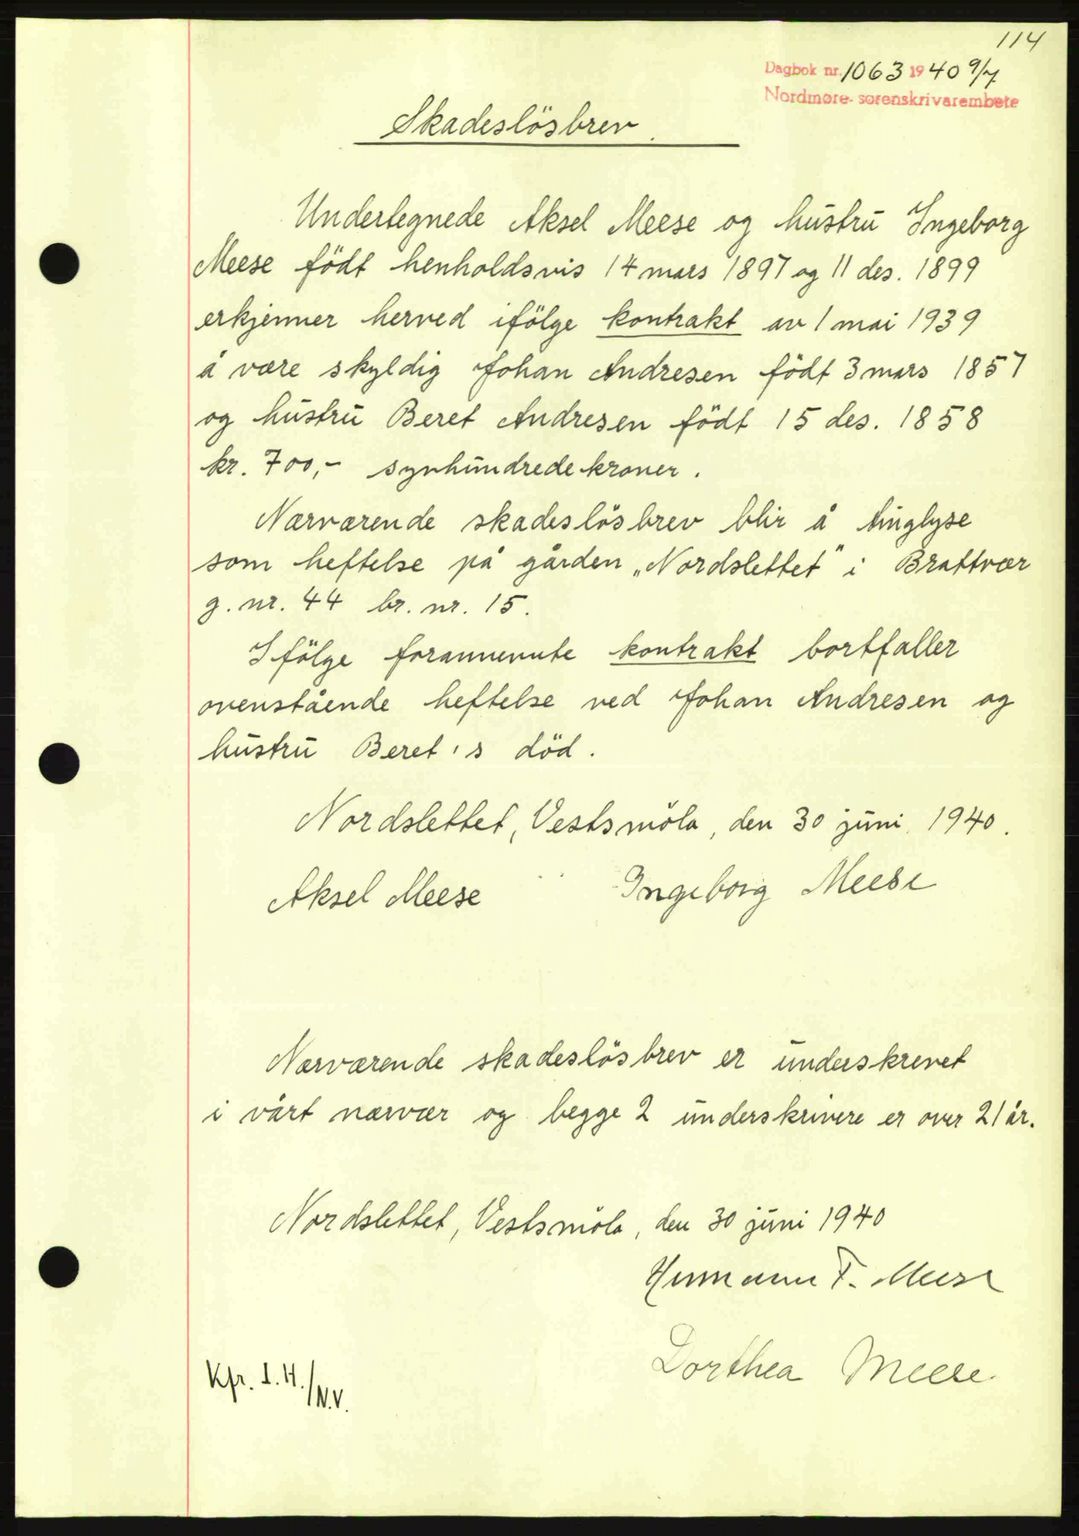 114
Dagbok nr. 1063 1940 9/7
Nordmøre sorenskrivarembete
Skadeslösbrev.
Undertegnede Aksel Meese og hustru Ingeborg
Meese födt henholdsvis 14 mars 1897 og 11 des. 1899
erkjenner herved ifölge kontrakt av 1 mai 1939
å være skyldig Johan Andresen födt 3 mars 1857
og hustru Beret Andresen födt 15 des. 1858
kr. 700,- syvhundredekroner.
Nærværende skadeslösbrev blir å tinglyse
som heftelse på gården „Nordslettet" i Brattvær
g. nr. 44 br. nr. 15.
Ifölge forannevnte kontrakt bortfaller
ovenstående heftelse ved Johan Andresen og
hustru Beret's död.
Nordslettet, Vestsmöla, den 30 juni 1940.
Aksel Meese Ingeborg Meese
Nærværende skadeslösbrev er underskrevet
i vårt nærvær og begge 2 underskrivere er over 21 år.
Nordslettet, Vestsmöla, den 30 juni 1940
Hermann F. Meese
Dorthea Meese
Kfr. I.H./N.V.